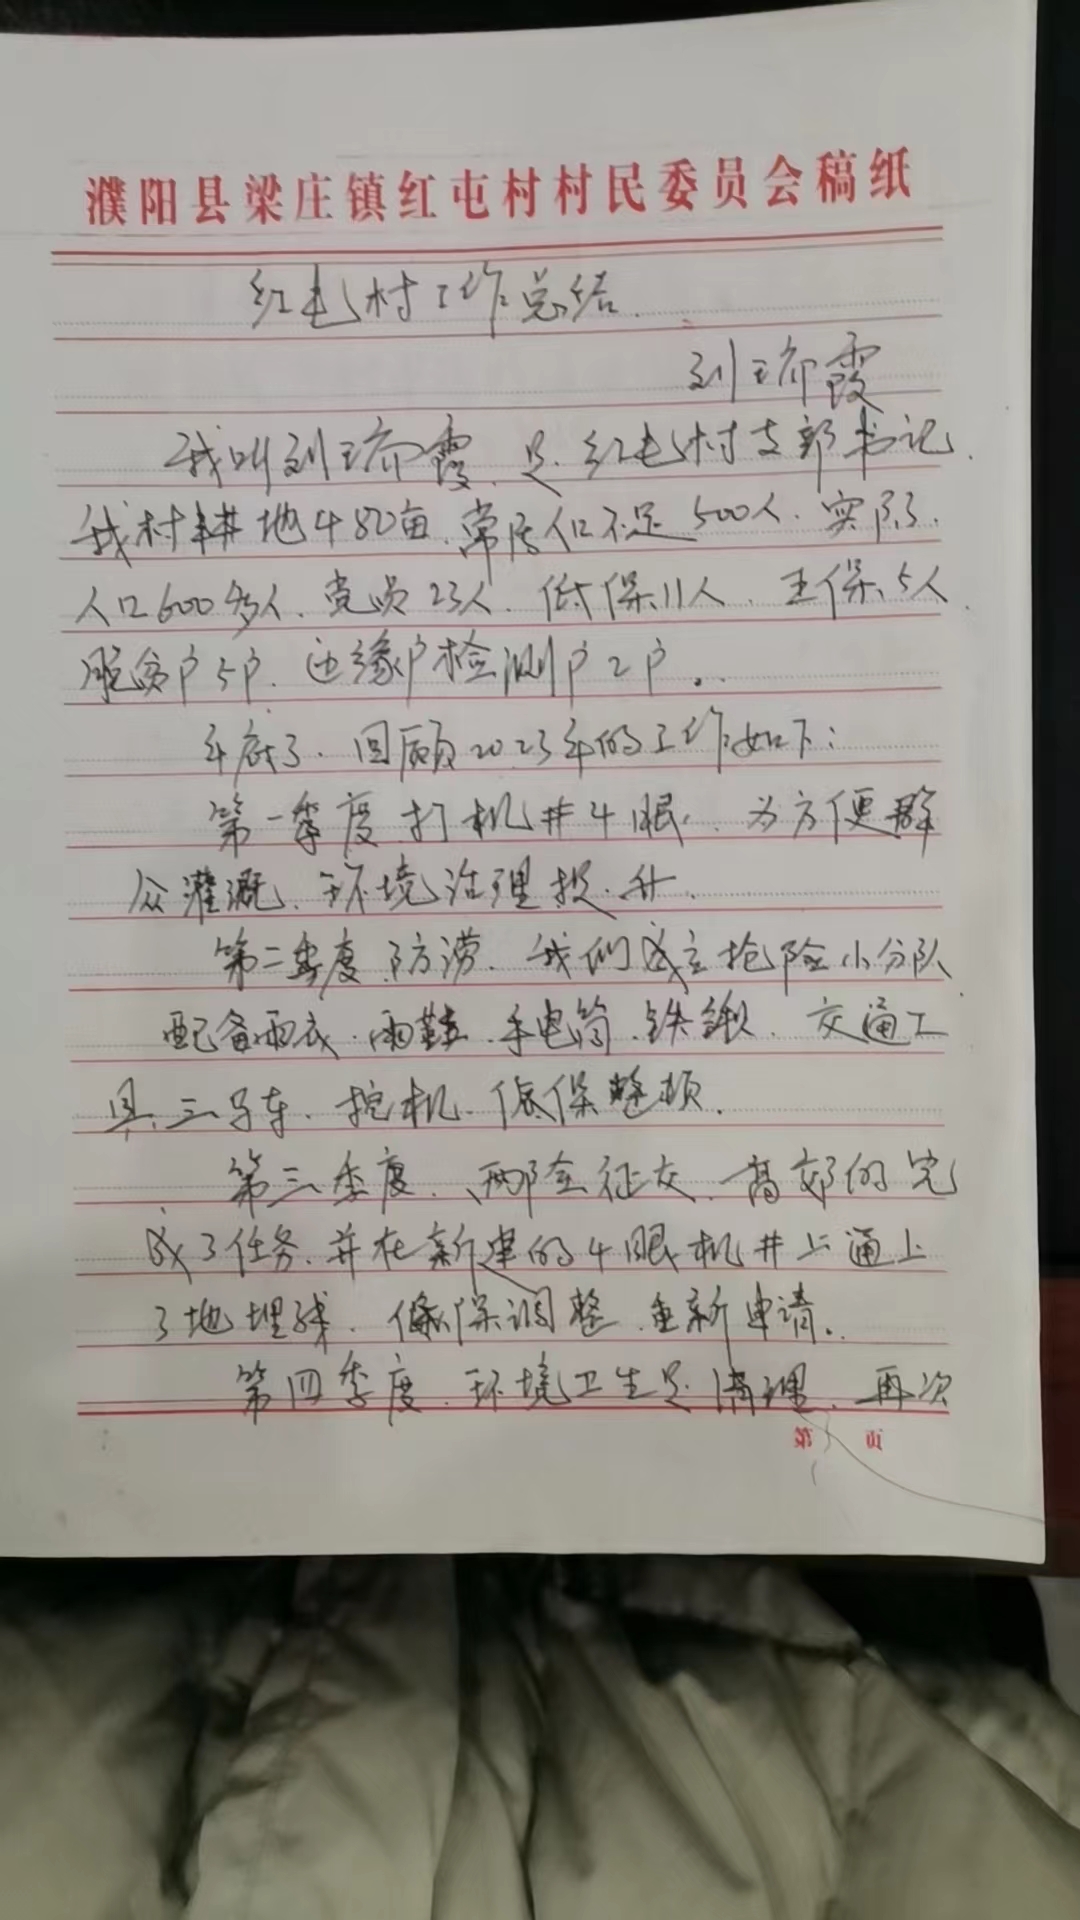 濮阳县梁庄镇红屯村村民委员会稿纸
红屯村工作总结.
刘霞
我叫刘霞.是.红屯村支部书记.
我村耕地480亩.常居人口不足500人.实际.
人口600多人.党员23人.低保11人.五保.5人.
脱贫户5户.边缘户检测户2户。.
年底了.回顾2023年的工作如下:
第一季度.打机井4眼.为方便群
众灌溉.环境治理提.升.
第二季度.防涝.我们成立抢险小分队.
配备雨衣.雨鞋.手电筒.铁锹.交通工
具.三马车.挖机.低保整顿.
第三季度.两险征交.高效的完
成了任务.并在新建的4眼机井上通上
了地埋线.低保调整.重新申请。.
第四季度.环境卫生是清理.再次
第 页